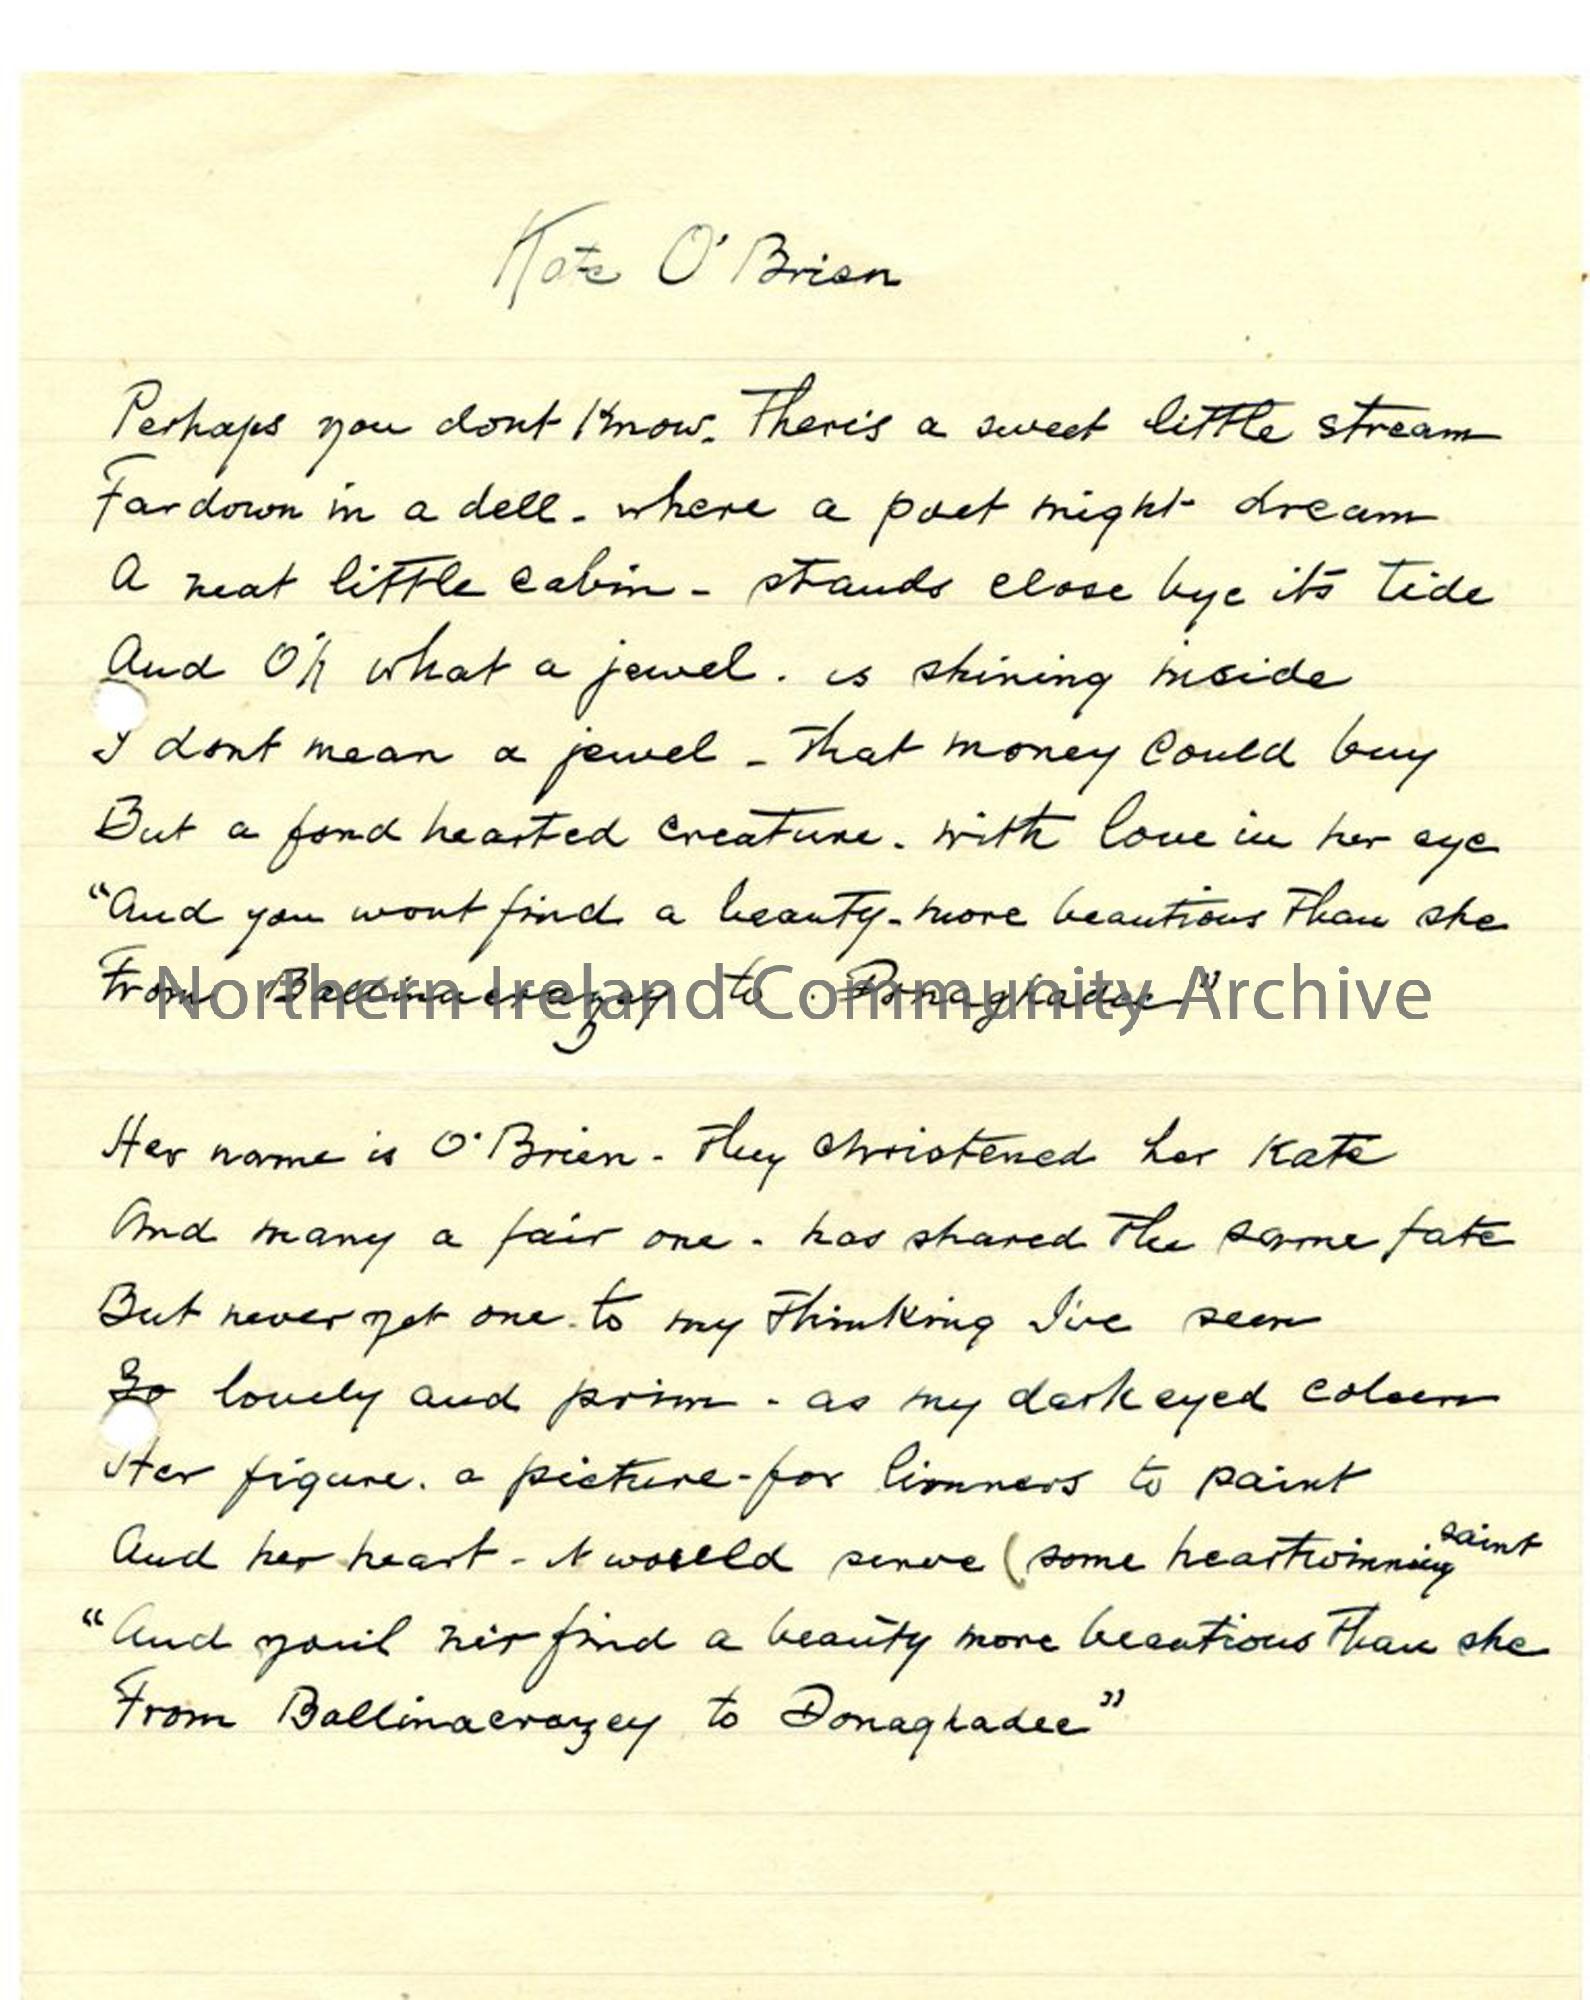 Kate O'Brien
Perhaps you dont know. There's a sweet little stream
Far down in a dell - where a poet might dream
A neat little cabin - stands close bye its tide
And O'h what a jewel. is shining inside
I dont mean a jewel - that money could buy
But a fond hearted creature. with love in her eye
"And you wont find a beauty - more beautious than she
From Ballinacrazey to Donaghadee"
Northern Ireland Community Archive
Her name is O'Brien - They christened her Kate
And many a fair one - has shared the same fate
But never yet one. to my thinking I've seen
So lovely and prim - as my dark eyed coleen
Her figure. a picture - for limners to paint
And her heart - it would serve (some heartwinning saint
"And you'il neir find a beauty more beautious than she
From Ballinacrazey to Donaghadee"